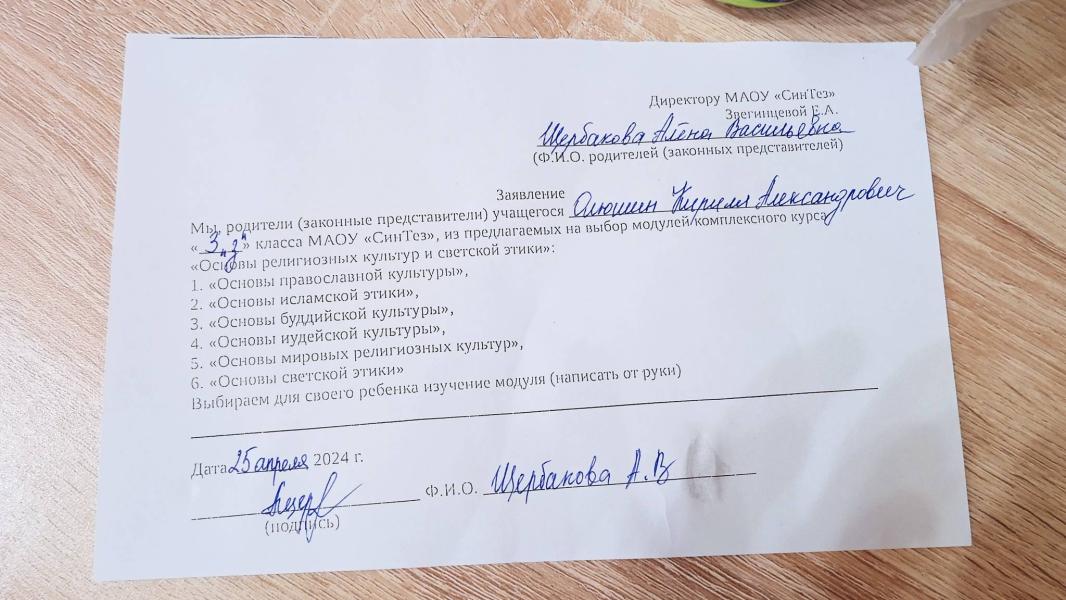 Директору МАОУ «СинТез»
Звегинцевой Е.А.
Щербакова Алёна Васильевна
(Ф.И.О. родителей (законных представителей)
Заявление
Мы, родители (законные представители) учащегося Олюшин Кирилл Александрович
« 3 „з" » класса МАОУ «СинТез», из предлагаемых на выбор модулей комплексного курса
«Основы религиозных культур и светской этики»:
1. «Основы православной культуры»,
2. «Основы исламской этики»,
3. «Основы буддийской культуры»,
4. «Основы иудейской культуры»,
5. «Основы мировых религиозных культур»,
6. «Основы светской этики»
Выбираем для своего ребенка изучение модуля (написать от руки)
Дата 25 апреля 2024 г.
Ф.И.О. Щербакова А.В
(подпись)